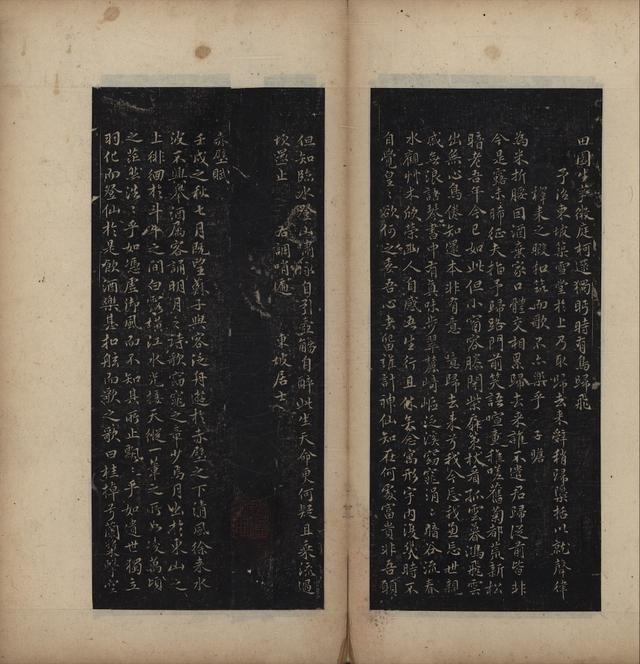 田園生夢微庭柯還獨眄時有鳥歸飛
予治東坡築雪堂於上乃取歸去來辭稍歸檃括以就聲律
釋耒之暇扣而歌不亦樂乎 子瞻
為米折腰因酒棄家口體交相累歸去來誰不遣君歸從前皆非
今是露未晞征夫指予歸路門前笑語喧童稚嗟舊菊都荒新松
暗老吾年今已如此但小窗容膝閉柴扉策杖看孤雲暮鴻飛雲
出無心鳥倦知還本非有意 噫歸去來兮我今忘我兼忘世親
戚無浪語琴書中有真味步翠麓崎嶇泛溪窈窕涓〻暗谷流春
水觀艸木欣榮幽人自感吾生行且休矣念寓形宇內復幾時不
自覺皇〻欲何之委吾心去留誰計神仙知在何處富貴非吾願
但知臨水登山嘯詠自引壺觴自醉此生天命更何疑且乘流遇
坎還止 右調哨遍 東坡居士
赤壁賦
壬戌之秋七月既望蘇子與客泛舟遊於赤壁之下清風徐來水
波不興舉酒屬客誦明月之詩歌窈窕之章少焉月出於東山之
上徘徊於斗牛之間白露橫江水光接天縱一葦之所如凌萬頃
之茫然浩〻乎如憑虛御風而不知其所止飄〻乎如遺世獨立
羽化而登仙於是飲酒樂甚扣舷而歌之歌曰桂棹兮蘭槳擊空